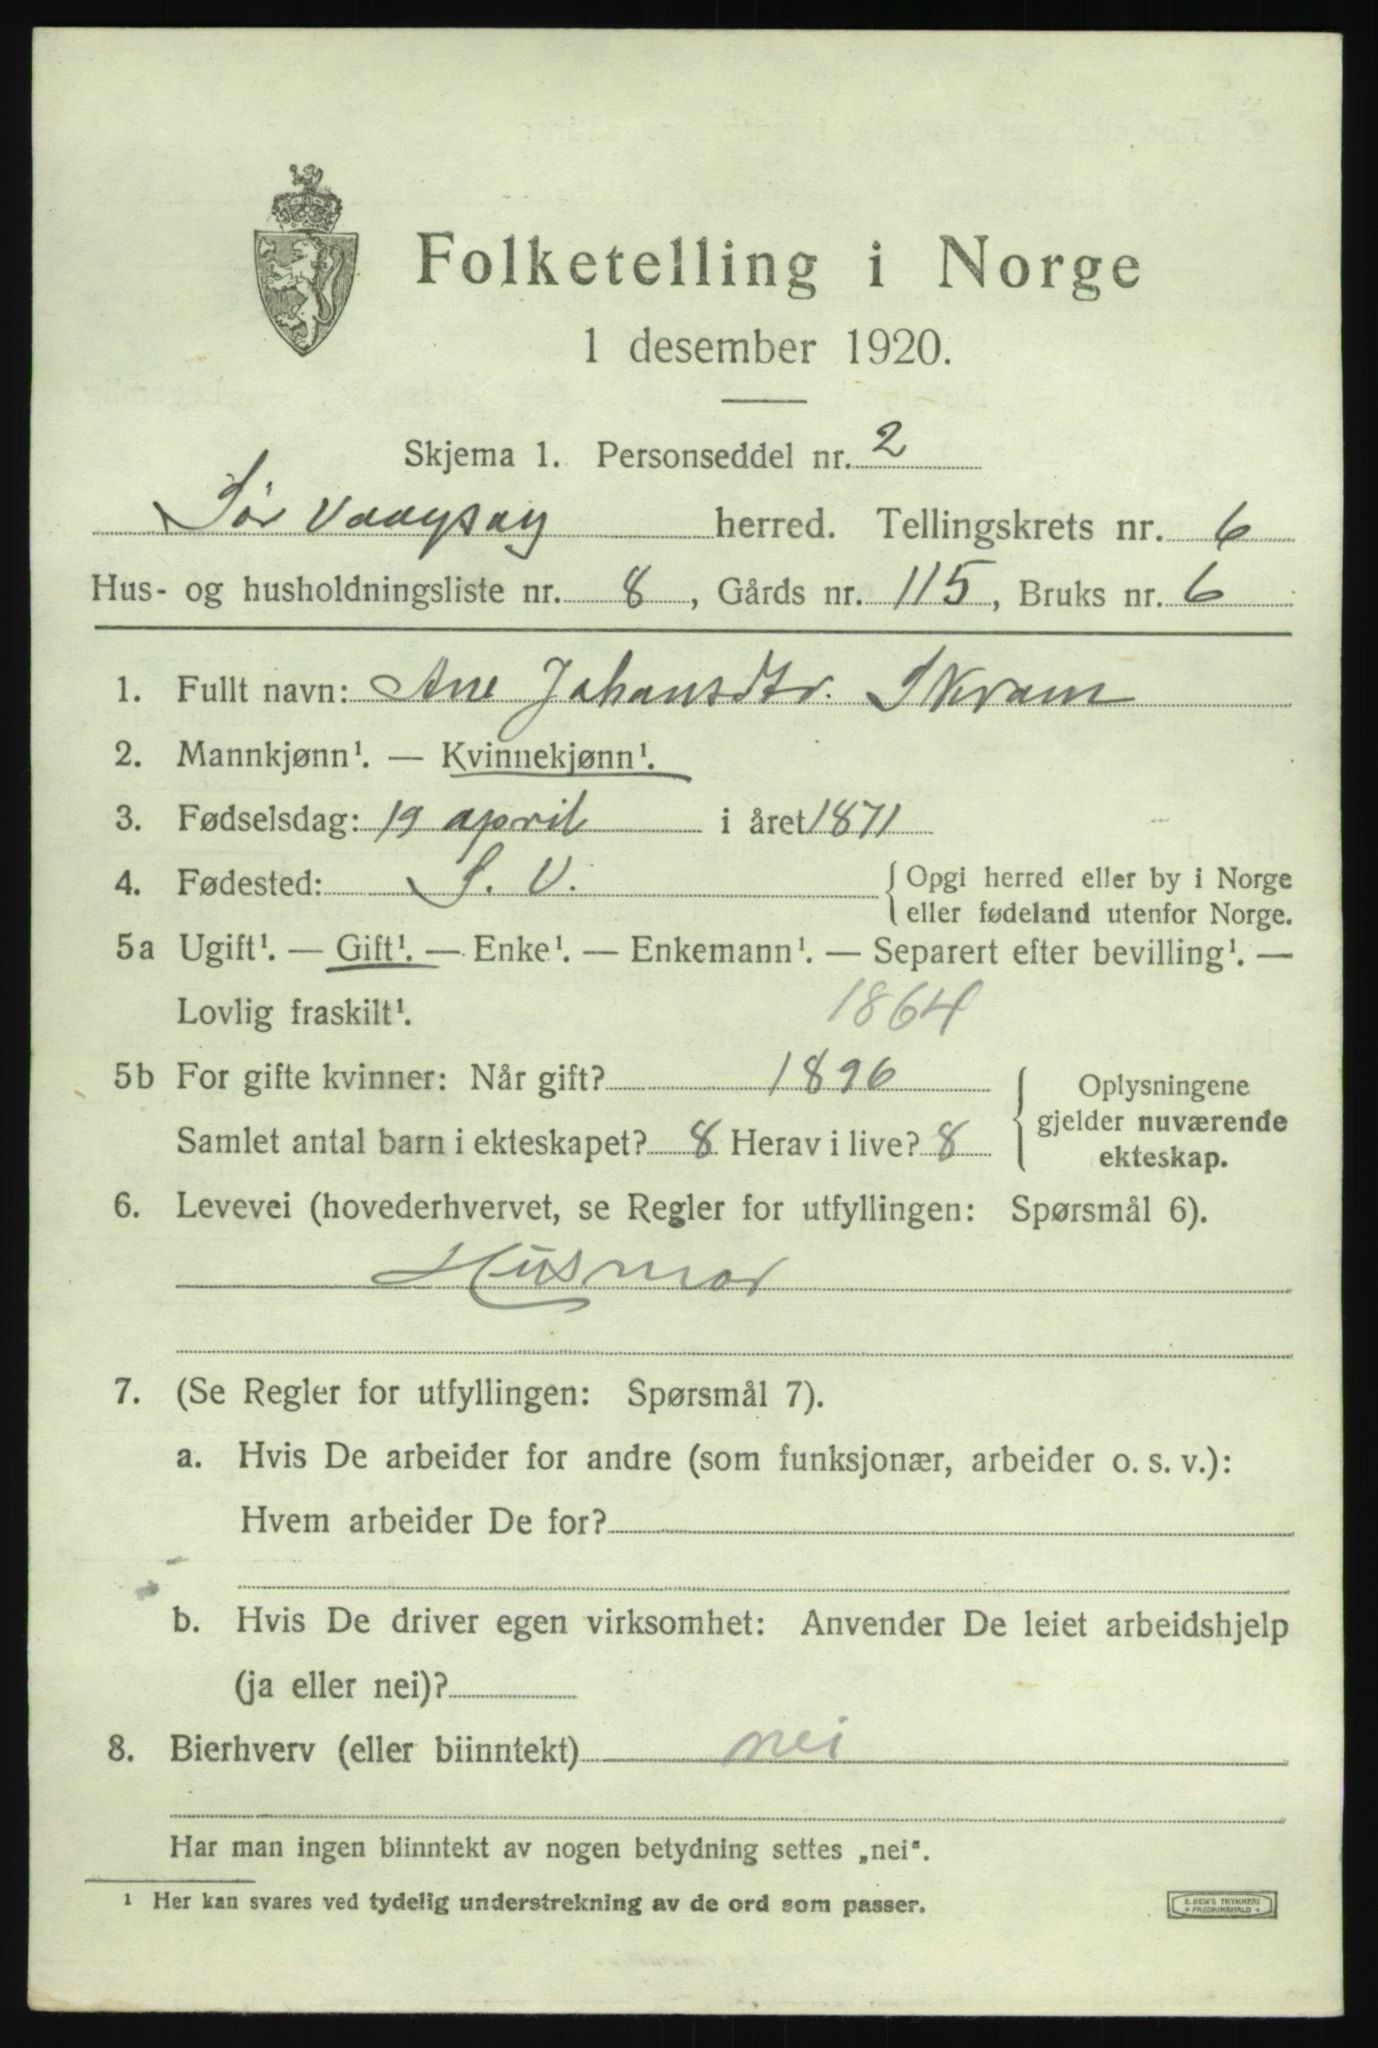 Folketelling i Norge
1 desember 1920.
Skjema 1. Personseddel nr. 2
Sør Vaagsøy herred. Tellingskrets nr. 6
Hus- og husholdningsliste nr. 8, Gårds nr. 115, Bruks nr. 6
1. Fullt navn: Ane Johansdtr. Skram
2. Mannkjønn¹. — Kvinnekjønn¹.
3. Fødselsdag: 19 april i året 1871
4. Fødested: S. V. Opgi herred eller by i Norge
eller fødeland utenfor Norge.
5a Ugift¹. — Gift¹. — Enke¹. — Enkemann¹. — Separert efter bevilling¹. —
Lovlig fraskilt¹. 1864
5b For gifte kvinner: Når gift? 1896 Oplysningene
gjelder nuværende
Samlet antal barn i ekteskapet? 8 Herav i live? 8 ekteskap.
6. Levevei (hovederhvervet, se Regler for utfyllingen: Spørsmål 6).
Husmor
7. (Se Regler for utfyllingen: Spørsmål 7).
a. Hvis De arbeider for andre (som funksjonær, arbeider o. s. v.):
Hvem arbeider De for?
b. Hvis De driver egen virksomhet: Anvender De leiet arbeidshjelp
(ja eller nei)?
8. Bierhverv (eller biinntekt) nei
Har man ingen biinntekt av nogen betydning settes „nei".
¹ Her kan svares ved tydelig understrekning av de ord som passer.
E. SEM'S TRYKKERI
* FREDRIKSHALD *